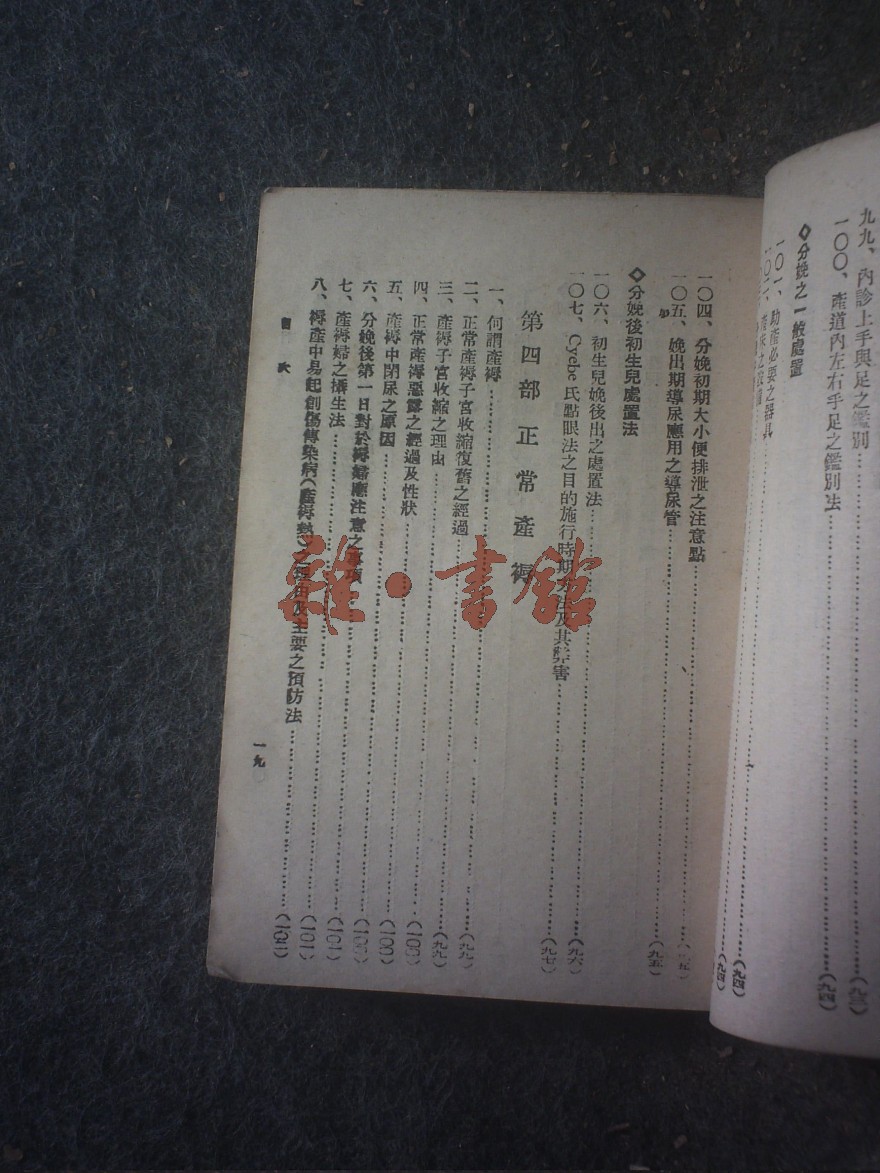 九九、內診上手與足之鑑別…(九三)
一〇〇、產道內左右手足之鑑別法…(九四)
◇分娩之一般處置
一〇一、助產必要之器具…(九四)
一〇二、產床之設備…(九四)
一〇四、分娩初期大小便排泄之注意點
一〇五、娩出期導尿應用之導尿管…(九五)
◇分娩後初生兒處置法
一〇六、初生兒娩後出之處置法…(九六)
一〇七、Cyebe氏點眼法之目的施行時期方法及其弊害…(九七)
第四部 正常產褥
一、何謂產褥…(九九)
二、正常產褥子宮收縮復舊之經過…(九九)
三、產褥子宮收縮之理由…(一〇〇)
四、正常產褥惡露之經過及性狀…(一〇〇)
五、產褥中閉尿之原因…(一〇〇)
六、分娩後第一日對於褥婦應注意之事項…(一〇一)
七、產褥婦之攝生法…(一〇一)
八、褥產中易起創傷傳染病(產褥熱)之理由及主要之預防法…
目次
一九
雜·書館